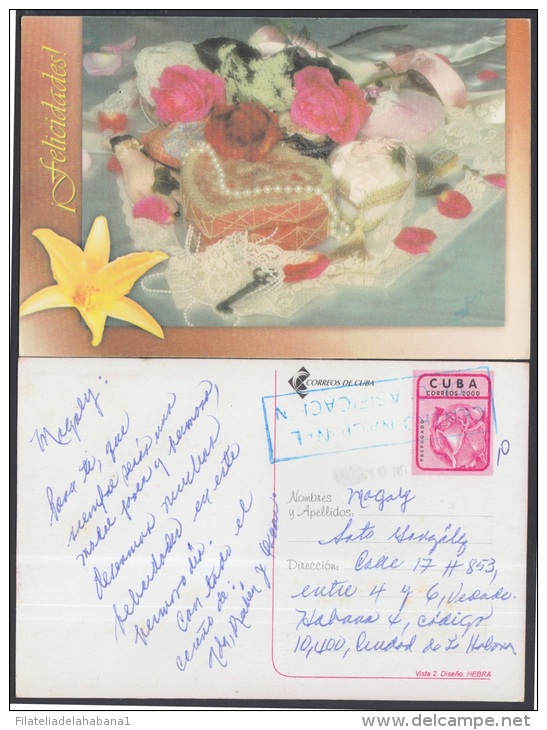 ¡Felicidades!
CORREOS DE CUBA
CUBA
CORREOS 2000
PREPAGADO
NACIONAL
10
Magaly:
Para ti, que
siempre serás una
madre joven y hermosa,
deseamos muchas
felicidades en este
hermoso día.
Con todo el
cariño de:
y
Nombres
y Apellidos:
Magaly
Soto González
Dirección: Calle 17 # 853,
entre 4 y 6, Vedado
Habana 4, código
10,400, Ciudad de La Habana
Vista 2. Diseño: HEBRA
Filateliadelahabana1
delcampe.net